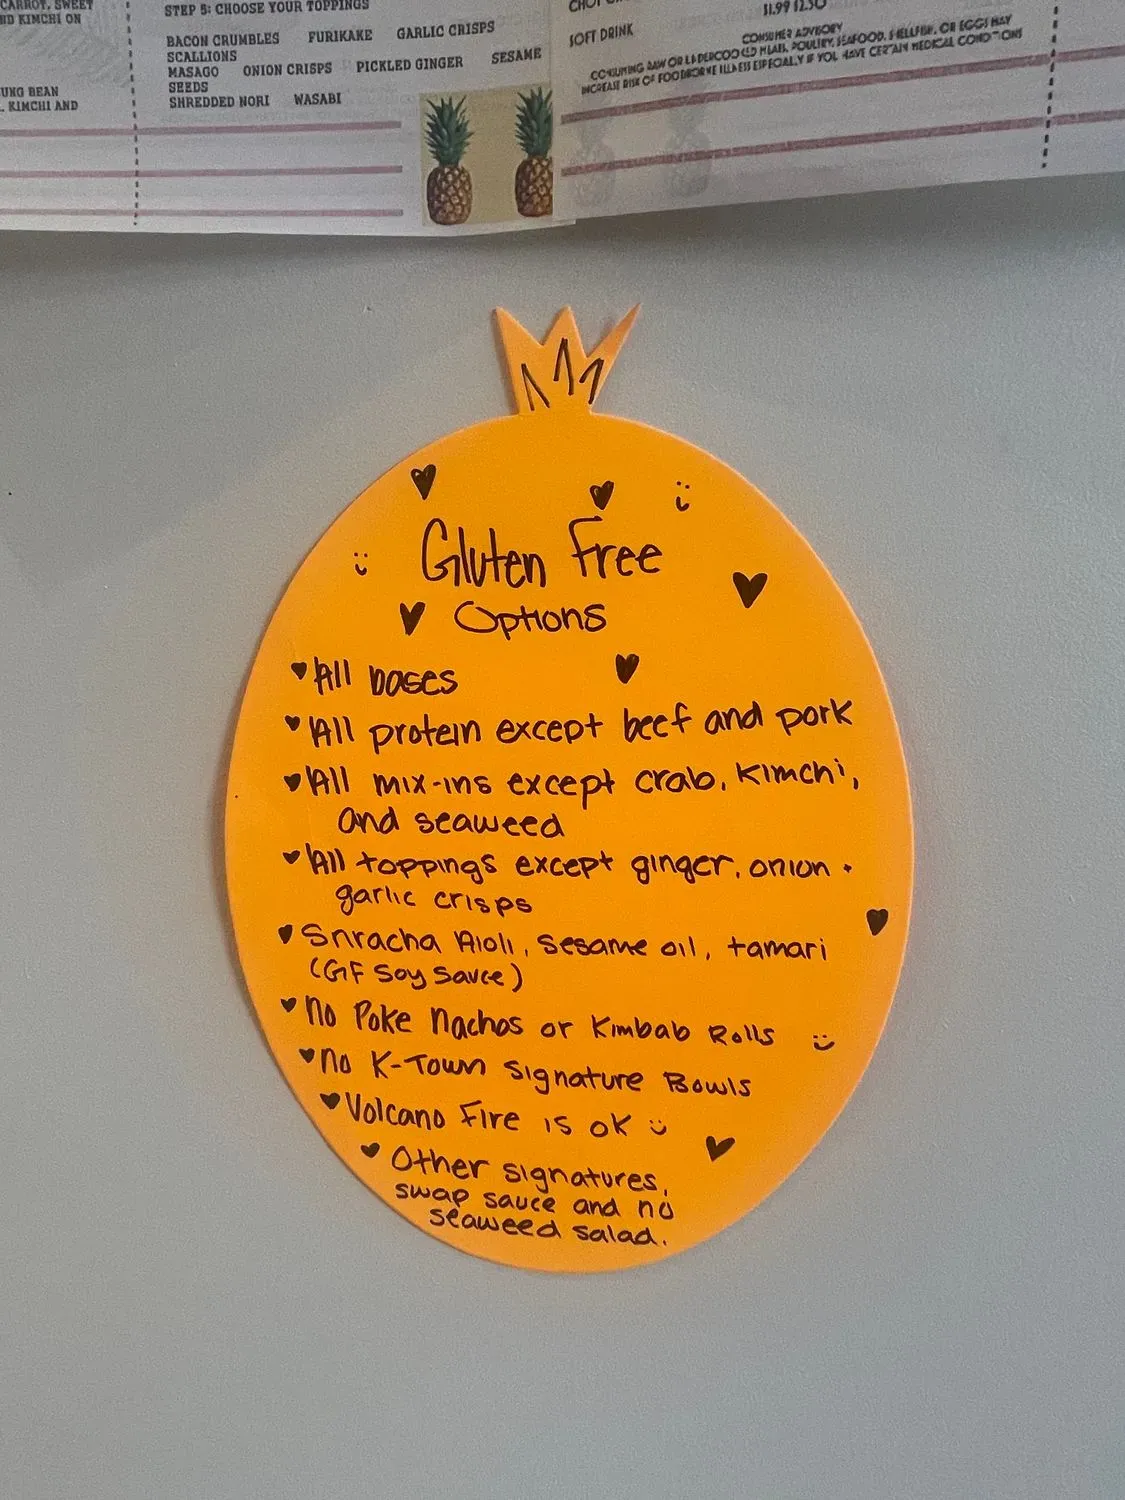 CARROT, SWEET
ND KIMCHI ON
UNG BEAN
, KIMCHI AND
STEP 5: CHOOSE YOUR TOPPINGS
BACON CRUMBLES FURIKAKE GARLIC CRISPS
SCALLIONS
MASAGO ONION CRISPS PICKLED GINGER SESAME
SEEDS
SHREDDED NORI WASABI
$1.99 $2.50
SOFT DRINK
CONSUMER ADVISORY
CONSUMING RAW OR UNDERCOOKED MEATS, POULTRY, SEAFOOD, SHELLFISH, OR EGGS MAY
INCREASE RISK OF FOODBORNE ILLNESS ESPECIALLY IF YOU HAVE CERTAIN MEDICAL CONDITIONS
Gluten Free
Options
All bases
All protein except beef and pork
All mix-ins except crab, kimchi,
and seaweed
All toppings except ginger, onion +
garlic crisps
Sriracha Aioli, sesame oil, tamari
(GF Soy Sauce)
No Poke Nachos or Kimbab Rolls
No K-Town Signature Bowls
Volcano Fire is ok
Other signatures,
swap sauce and no
seaweed salad.